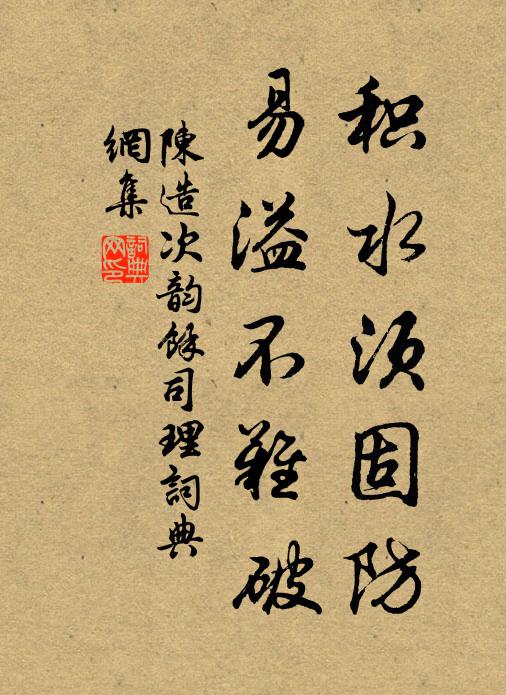 积水须固防
易溢不难破
陳造次韵餘司理詞典
網集
詞典网印